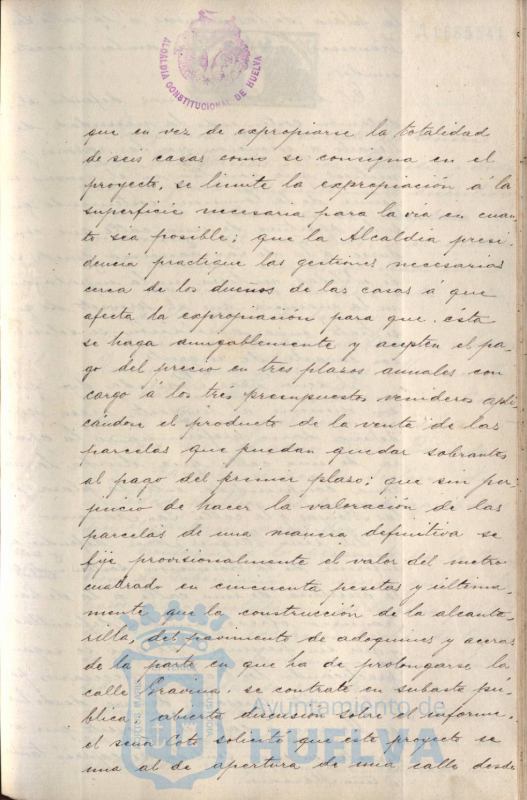 ALCALDIA CONSTITUCIONAL DE HUELVA
que en vez de expropiarse la totalidad
de seis casas como se consigna en el
proyecto, se limite la expropiación á la
superficie necesaria para la via en cuan
to sea posible; que la Alcaldia presi
dencia practique las gestiones necesarias
cerca de los dueños de las casas á que
afecta la expropiación para que ésta
se haga amigablemente y acepten el pa-
go del precio en tres plazos anuales con
cargo á los tres presupuestos venideros apli
cándose el producto de la venta de las
parcelas que puedan quedar sobrantes
al pago del primer plazo; que sin per
juicio de hacer la valoración de las
parcelas de una manera definitiva se
fije provisionalmente el valor del metro
cuadrado en cincuenta pesetas y última-
mente que la construcción de la alcanta-
rilla, del pavimento de adoquines y aceras
de la parte en que ha de prolongarse la
calle Gravina, se contrate en subasta pú-
blica abierta discusión sobre el informe,
el señor Coto solicitó que este proyecto se
una al de apertura de una calle desde
Ayuntamiento de
HUELVA